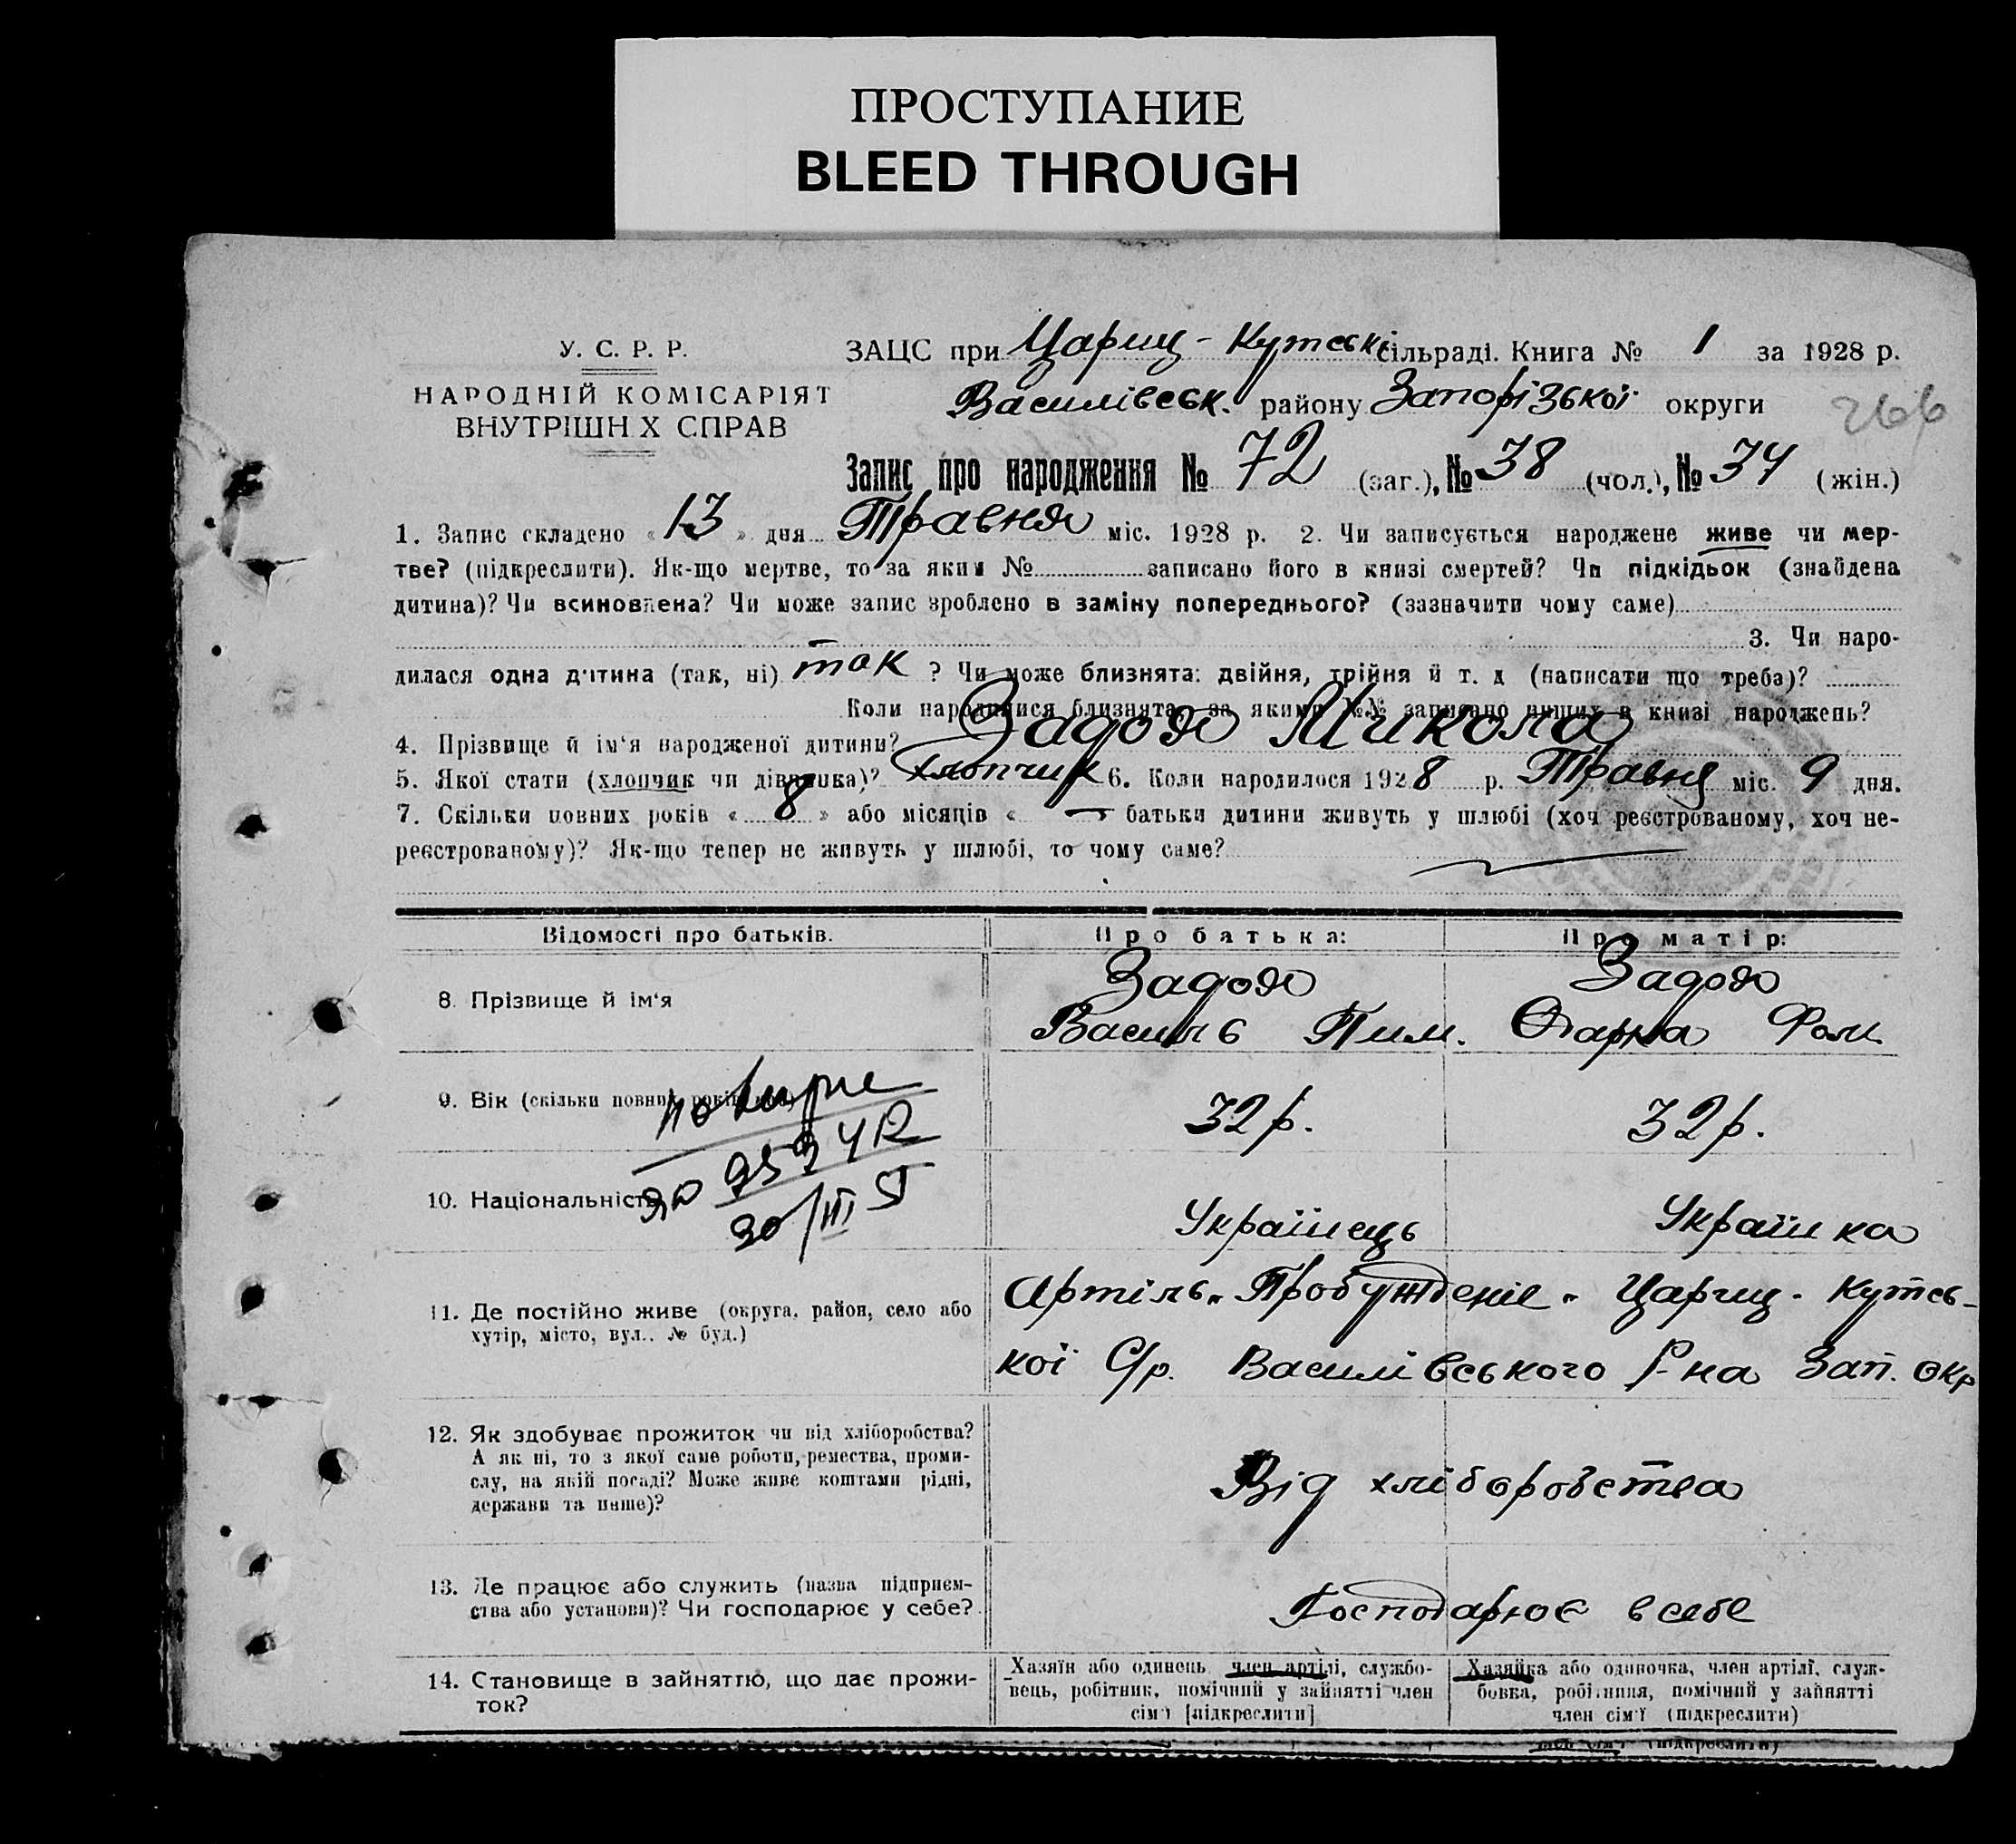 ПРОСТУПАНИЕ
BLEED THROUGH
У. С. Р. Р.
НАРОДНІЙ КОМІСАРІЯТ
ВНУТРІШН Х СПРАВ
ЗАЦС при Цариц-Кутськ. сільраді. Книга № 1 за 1928 р.
Василівськ. району Запорізької округи
266
Запис про народження № 72 (заг.), № 38 (чол.), № 34 (жін.)
1. Запис складено « 13 » дня Травня міс. 1928 р. 2. Чи записується народжене живе чи мер-
тве? (підкреслити). Як-що мертве, то за яким № записано його в книзі смертей? Чи підкідьок (знайдена
дитина)? Чи всиновлена? Чи може запис зроблено в заміну попереднього? (зазначити чому саме)
3. Чи наро-
дилася одна дитина (так, ні) так ? Чи може близнята: двійня, трійня й т. д (написати що треба)?
Коли народилися близнята, за якими №№ записано инших в книзі народжень?
4. Прізвище й ім'я народженої дитини? Задоя Микола
5. Якої стати (хлопчик чи дівчинка)? Хлопчик 6. Коли народилося 1928 р. Травня міс. 9 дня.
7. Скільки повних років « 8 » або місяців « — батьки дитини живуть у шлюбі (хоч реєстрованому, хоч не-
реєстрованому)? Як-що тепер не живуть у шлюбі, то чому саме?
Відомості про батьків. Про батька: Про матір:
8. Прізвище й ім'я
Задоя Задоя
Василь Пим. Одарка Фом.
9. Вік (скільки повних років)
32 р. 32 р.
10. Національність
30/III
Українець Українка
11. Де постійно живе (округа, район, село або
хутір, місто, вул.. № буд.)
Артіль „Пробужденіе" Цариц-Кутсь-
кої С/р. Василівського Р-на Зап. окр
12. Як здобуває прожиток чи від хліборобства?
А як ні, то з якої саме роботи, ремества, проми-
слу, на якій посаді? Може живе коштами рідні,
держави та инше)?
Від хліборобства
13. Де працює або служить (назва підприєм-
ства або установи)? Чи господарює у себе?
Господарює в себе
14. Становище в зайняттю, що дає прожи-
ток?
Хазяїн або одинець, член артілі, службо-
вець, робітник, помічний у зайнятті член
сім'ї [підкреслити]
Хазяйка або одиночка, член артілі, служ-
бовка, робітниця, помічний у зайнятті
член сім'ї (підкреслити)